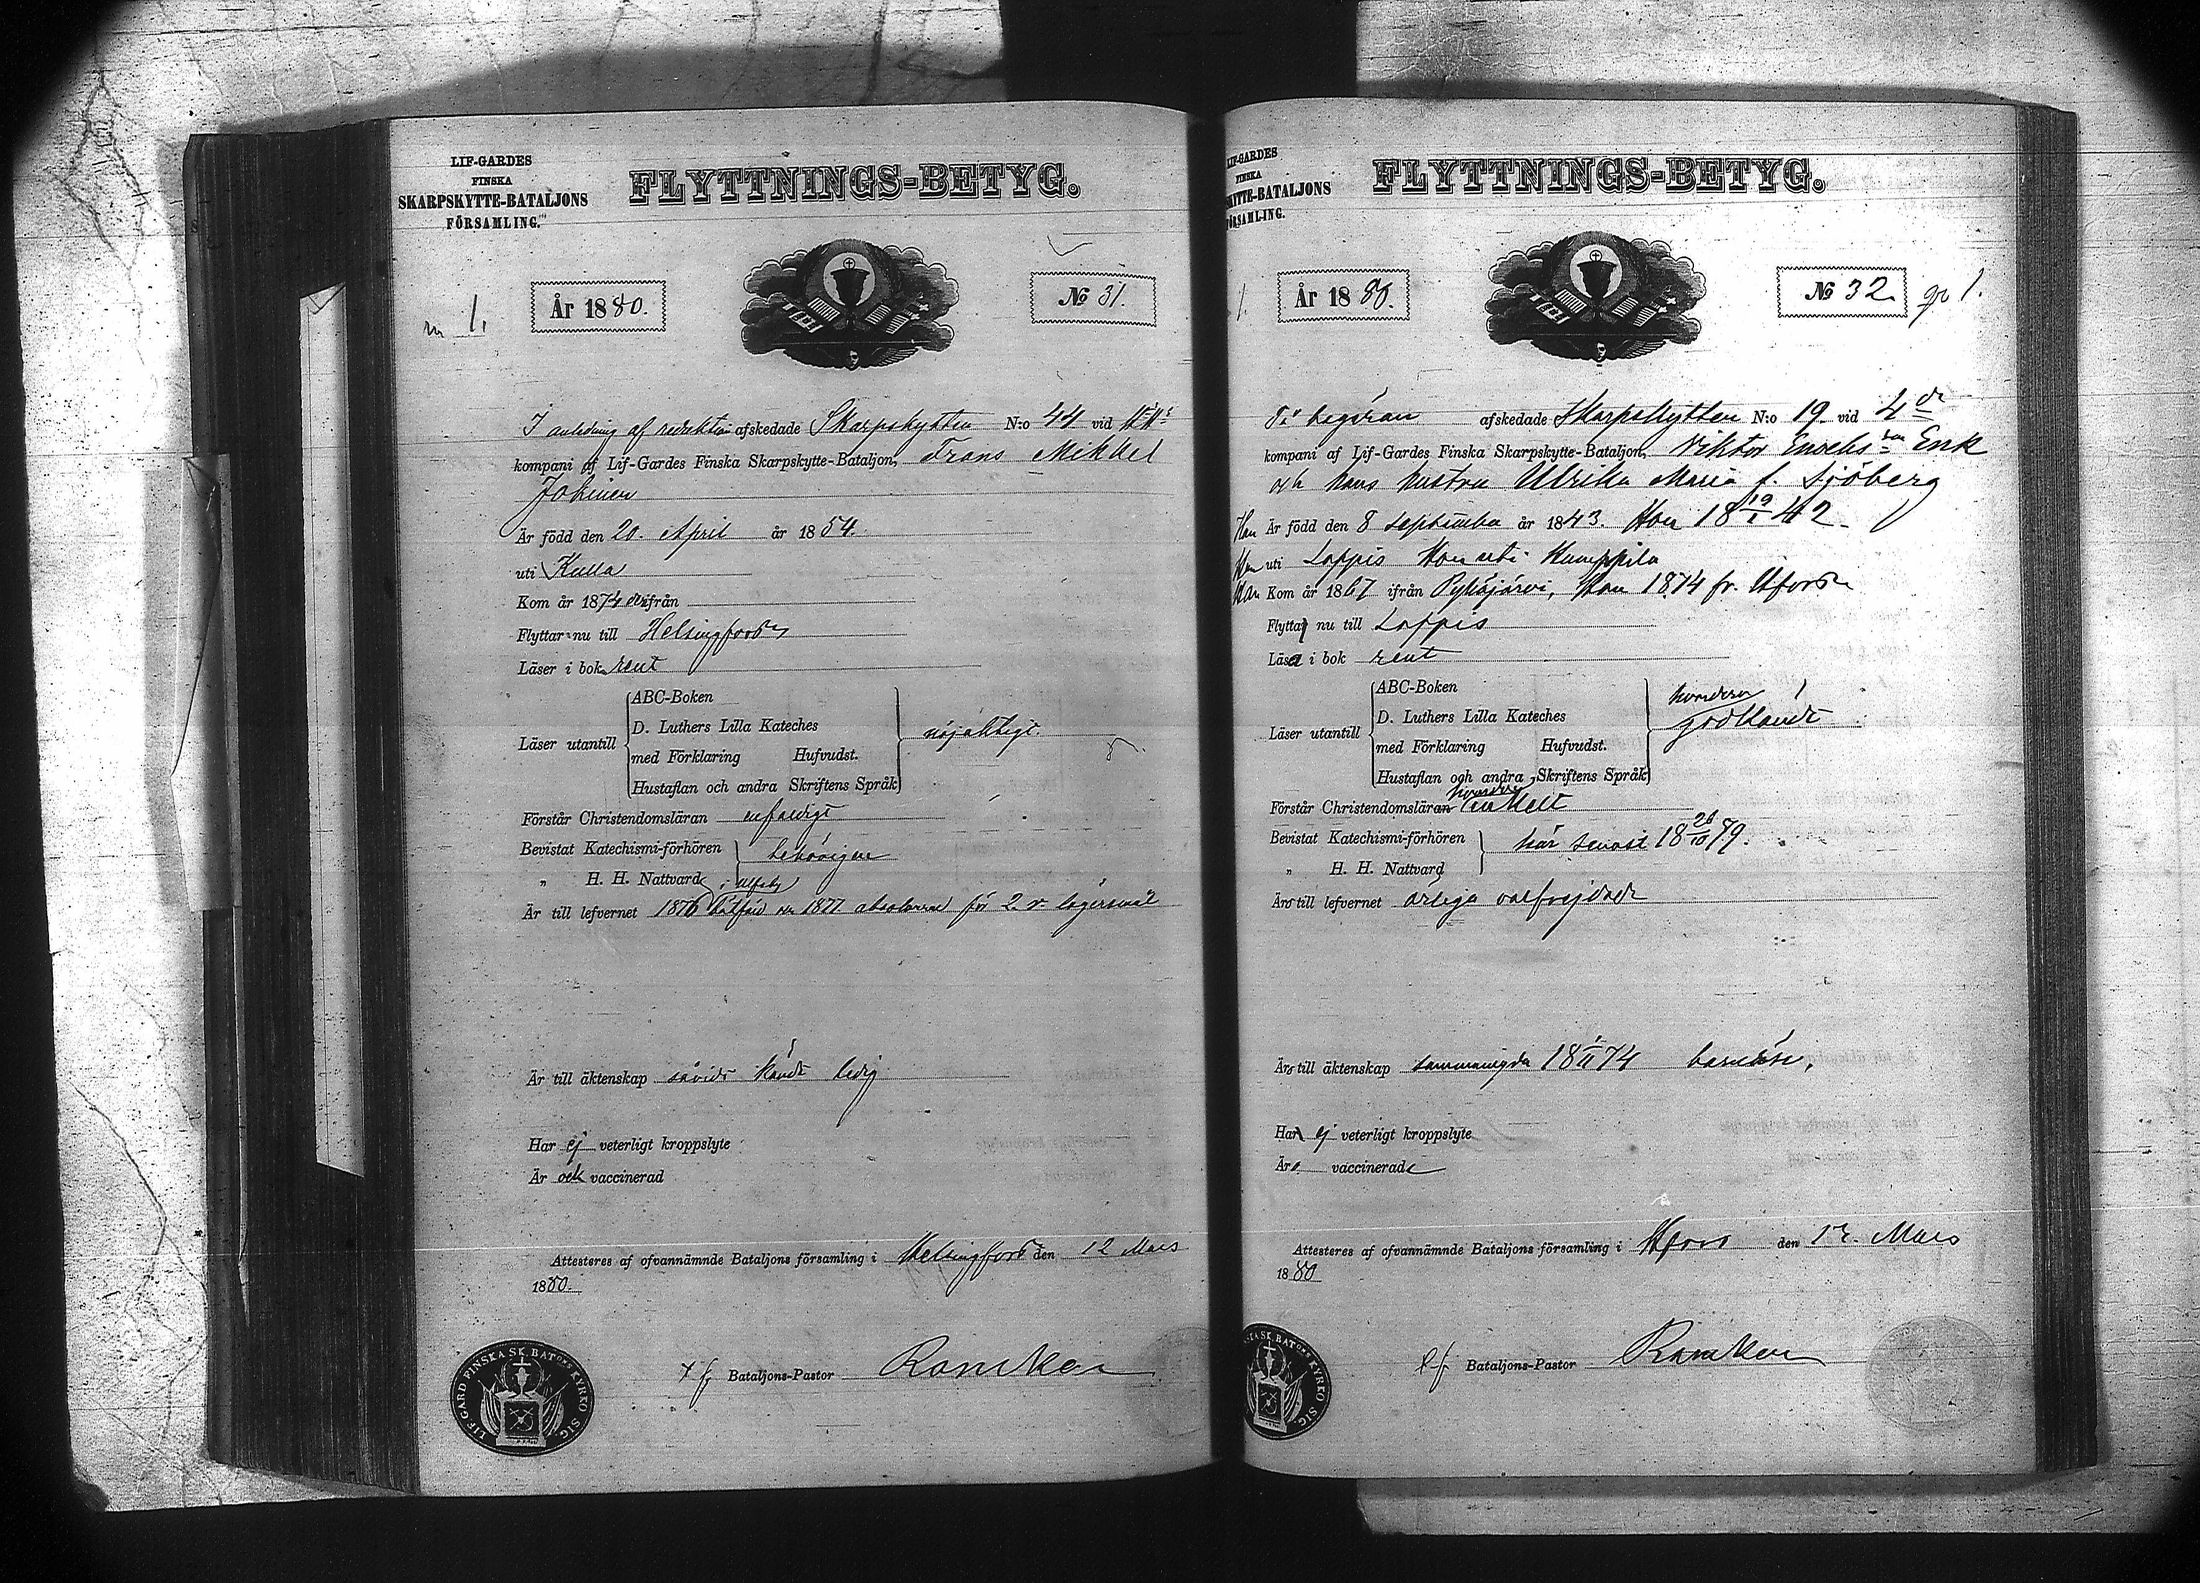 LIF-GARDES
FINSKA
SKARPSKYTTE-BATALJONS
FÖRSAMLING.
FLYTTNINGS-BETYG.
1.
År 1880.
№ 31.
I anledning af afskedade Skarpskytten N:o 44 vid
kompani af Lif-Gardes Finska Skarpskytte-Bataljon, Frans Mikkel
Jokinen
Är född den 20. April år 1854.
uti Kulla
Kom år 1874 ifrån
Flyttar nu till Helsingfors
Läser i bok rent
Läser utantill
ABC-Boken
D. Luthers Lilla Kateches
med Förklaring Hufvudst.
Hustaflan och andra Skriftens Språk
nöjaktigt.
Förstår Christendomsläran enfaldigt
Bevistat Katechismi-förhören
„ H. H. Nattvard
behörigen
i Ulfsby
Är till lefvernet 1876 1877 för 2. lägersmål
Är till äktenskap såvidt kändt ledig
Har ej veterligt kroppslyte
Är och vaccinerad
Attesteres af ofvannämnde Bataljons församling i Helsingfors den 12 Mars
1880.
Bataljons-Pastor
LIF GARD FINSKA SK. BATONS KYRKO SIG.
LIF-GARDES
FINSKA
SKYTTE-BATALJONS
FÖRSAMLING.
FLYTTNINGS-BETYG.
År 1880.
№ 32.
1.
På begäran afskedade Skarpskytten N:o 19. vid 4de
kompani af Lif-Gardes Finska Skarpskytte-Bataljon, Viktor Enochsson Enk
och hans hustru Ulrika Maria f. Sjöberg
Han Är född den 8 september år 1843. Hon 18 19/1 42.
Han uti Loppis Hon uti Humppila
Han Kom år 1867 ifrån Pyhäjärvi, Hon 1874 fr. Hfors
Flytta nu till Loppis
Läsa i bok rent
Läser utantill
ABC-Boken
D. Luthers Lilla Kateches
med Förklaring Hufvudst.
Hustaflan och andra Skriftens Språk
godkändt
Förstår Christendomsläran enkelt
Bevistat Katechismi-förhören
„ H. H. Nattvard
här senast 18 26/10 79.
Äro till lefvernet ärliga välfrejdade
Äro till äktenskap sammanvigda 18 1/11 74 barnlösa.
Ha ej veterligt kroppslyte
Äro vaccinerade
Attesteres af ofvannämnde Bataljons församling i Hfors den 12. Mars
1880
Bataljons-Pastor
SK. BATONS KYRKO SIG.